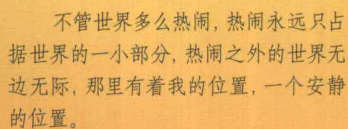 不管世界多么热闹,热闹永远只占
据世界的一小部分,热闹之外的世界无
边无际,那里有着我的位置,一个安静
的位置。